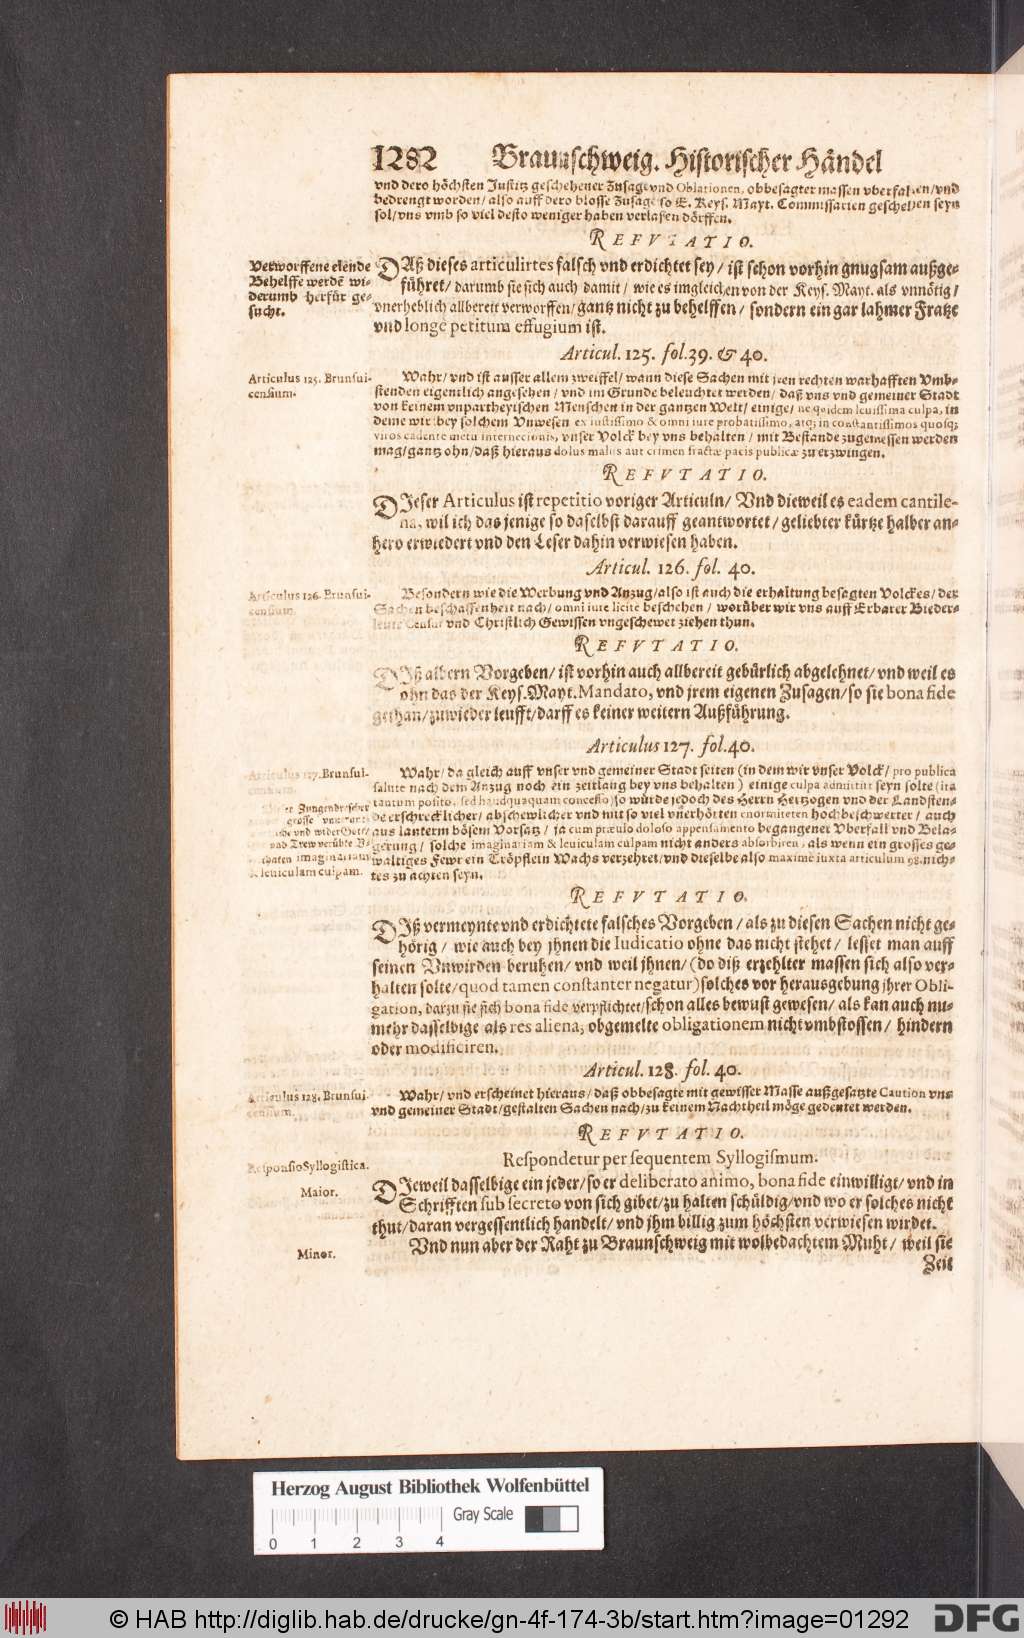 1282 Braunschweig. Historischer Händel
vnd dero höchsten Justitz geschehener Zusage vnd Oblationen, obbesagter massen vberfallen/vnd
bedrengt worden/also auff dero blosse Zusage so E. Keys. Mayt. Commissarien geschehen seyn
sol/vns vmb so viel desto weniger haben verlassen dörffen.
REFVTATIO.
Verworffene elende
Behelffe werdē wi-
derumb herfür ge-
sucht.
DAß dieses articulirtes falsch vnd erdichtet sey/ ist schon vorhin gnugsam außge-
führet/ darumb sie sich auch damit/ wie es imgleichen von der Keys. Mayt. als vnnötig/
vnerheblich allbereit verworffen/gantz nicht zu behelffen/ sondern ein gar lahmer Fratze
vnd longè petitum effugium ist.
Articul. 125. fol.39. & 40.
Articulus 125. Brunsui-
censium.
Wahr/vnd ist ausser allem zweiffel/wann diese Sachen mit jren rechten warhafften Vmb-
stenden eigentlich angesehen/vnd im Grunde beleuchtet werden/ daß vns vnd gemeiner Stadt
von keinem vnpartheyischen Menschen in der gantzen Welt/einige/ ne quidem leuissima culpa, in
deme wir bey solchem Vnwesen ex iustissimo & omni iure probatissimo, atq; in constantissimos quosq;
viros cadente metu internecionis, vnser Volck bey vns behalten/mit Bestande zugemessen werden
mag/gantz ohn/daß hieraus dolus malus aut crimen fractæ pacis publicæ zu erzwingen.
REFVTATIO.
DIeser Articulus ist repetitio voriger Articuln/ Vnd dieweil es eadem cantile-
na, wil ich das jenige so daselbst darauff geantwortet/geliebter kürtze halber an-
hero erwiedert vnd den Leser dahin verwiesen haben.
Articul. 126. fol. 40.
Articulus 126. Brunsui-
censium.
Besondern wie die Werbung vnd Anzug/also ist auch die erhaltung besagten Volckes/der
Sachen beschaffenheit nach/omni iure licitè beschehen/ worüber wir vns auff Erbarer Bieder-
leute Censur vnd Christlich Gewissen vngeschewet ziehen thun.
REFVTATIO.
DIß albern Vorgeben/ist vorhin auch allbereit gebürlich abgelehnet/vnd weil es
ohn das der Keys. Mayt. Mandato, vnd jrem eigenen Zusagen/so sie bona fide
gethan/zuwieder leufft/darff es keiner weitern Außführung.
Articulus 127. fol.40.
Articulus 127. Brunsui-
censium.
Zungendrescher
grosse
vnd wider Gott/
vnd Trew verübte
thaten imaginariam
& leuiculam culpam.
Wahr/da gleich auff vnser vnd gemeiner Stadt seiten (in dem wir vnser Volck/pro publica
salute nach dem Anzug noch ein zeitlang bey vns behalten) einige culpa admittirt seyn solte (ita
tantum posito, sed haudquaquam concesso) so würde jedoch des Herrn Hertzogen vnd der Landsten-
de erschrecklicher/abschewlicher vnd mit so viel vnerhörten enormiteten hochbeschwerter/auch
aus lauterm bösem Vorsatz/ ja cum præuio doloso appensamento begangener Vberfall vnd Bela-
gerung/ solche imaginariam & leuiculam culpam nicht anders absorbiren, als wenn ein grosses ge-
waltiges Fewr ein Tröpflein Wachs verzehret/vnd dieselbe also maximè iuxta articulum 98. nich-
tes zu achten seyn.
REFVTATIO.
DIß vermeynte vnd erdichtete falsches Vorgeben/als zu diesen Sachen nicht ge-
hörig/ wie auch bey jhnen die Iudicatio ohne das nicht stehet/ lesset man auff
seinen Vnwirden beruhen/ vnd weil jhnen/(do diß erzehlter massen sich also ver-
halten solte/quod tamen constanter negatur) solches vor herausgebung jhrer Obli-
gation, darzu sie sich bona fide verpflichtet/schon alles bewust gewesen/als kan auch nu-
mehr dasselbige als res aliena, obgemelte obligationem nicht vmbstossen/ hindern
oder modificiren.
Articul. 128. fol. 40.
Articulus 128. Brunsui-
censium.
Wahr/vnd erscheinet hieraus/daß obbesagte mit gewisser Masse außgesatzte Caution vns
vnd gemeiner Stadt/gestalten Sachen nach/zu keinem Nachtheil möge gedeutet werden.
REFVTATIO.
Responsio Syllogistica.
Respondetur per sequentem Syllogismum.
Maior.
DIeweil dasselbige ein jeder/so er deliberato animo, bona fide einwilligt/vnd in
Schrifften sub secreto von sich gibet/zu halten schüldig/vnd wo er solches nicht
thut/daran vergessentlich handelt/vnd jhm billig zum höchsten verwiesen wirdet.
Minor.
Vnd nun aber der Raht zu Braunschweig mit wolbedachtem Muht/ weil sie
Zeit
Herzog August Bibliothek Wolfenbüttel
Gray Scale
0 1 2 3 4
© HAB http://diglib.hab.de/drucke/gn-4f-174-3b/start.htm?image=01292
DFG